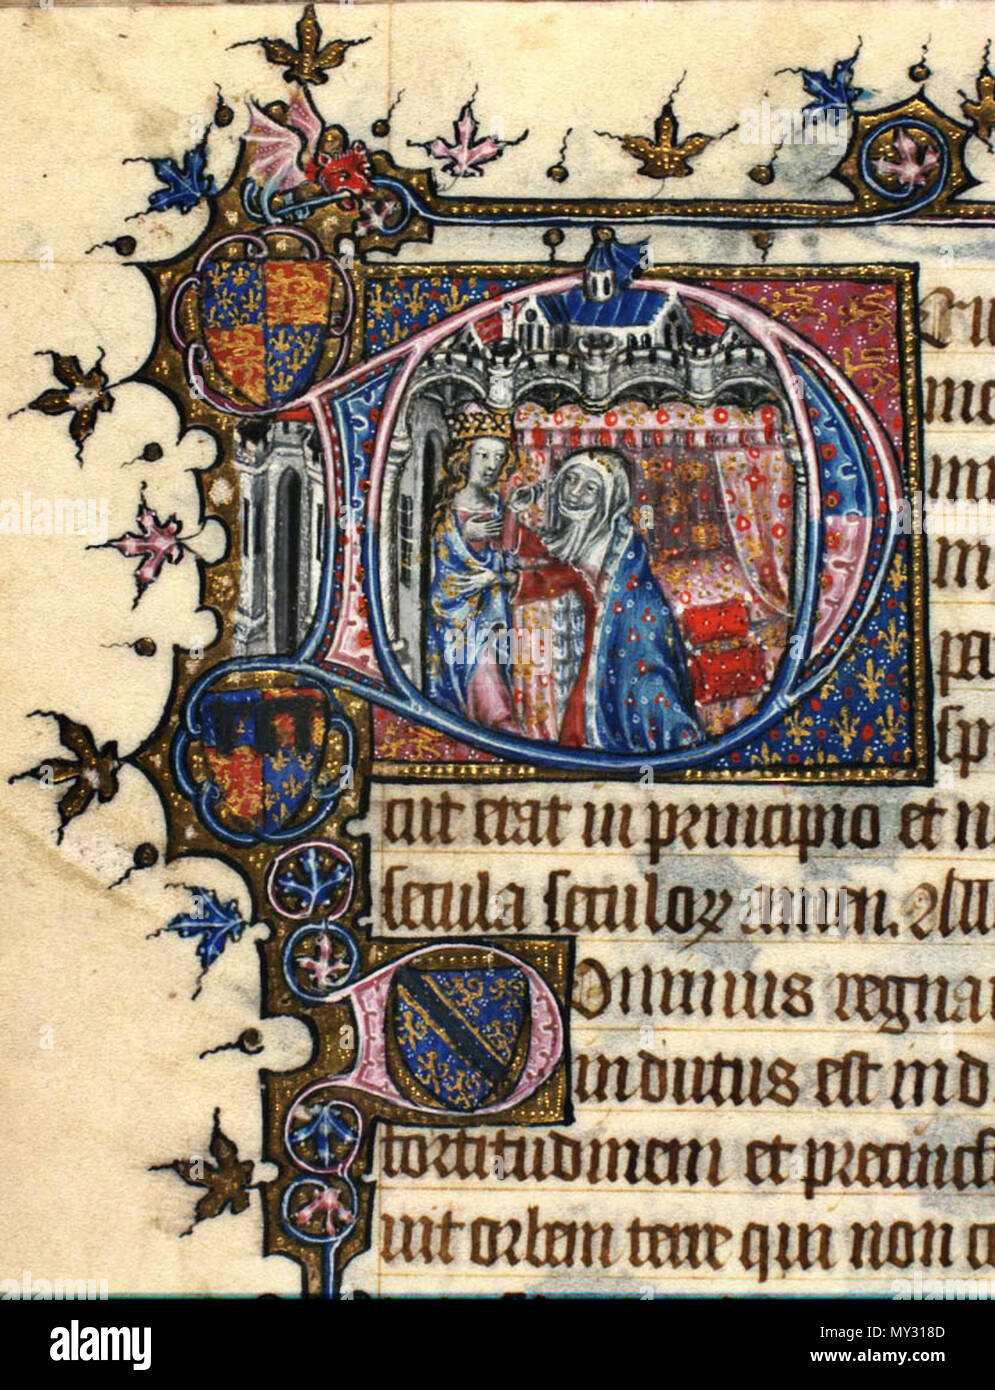 me
pa
cut erat in principio et n
secula seculoꝝ amen.
Dominus regna
indutus est ind
fortitudinem et precinct
uit orbem terre qui non c
alamy
Image ID: MY318D
www.alamy.com